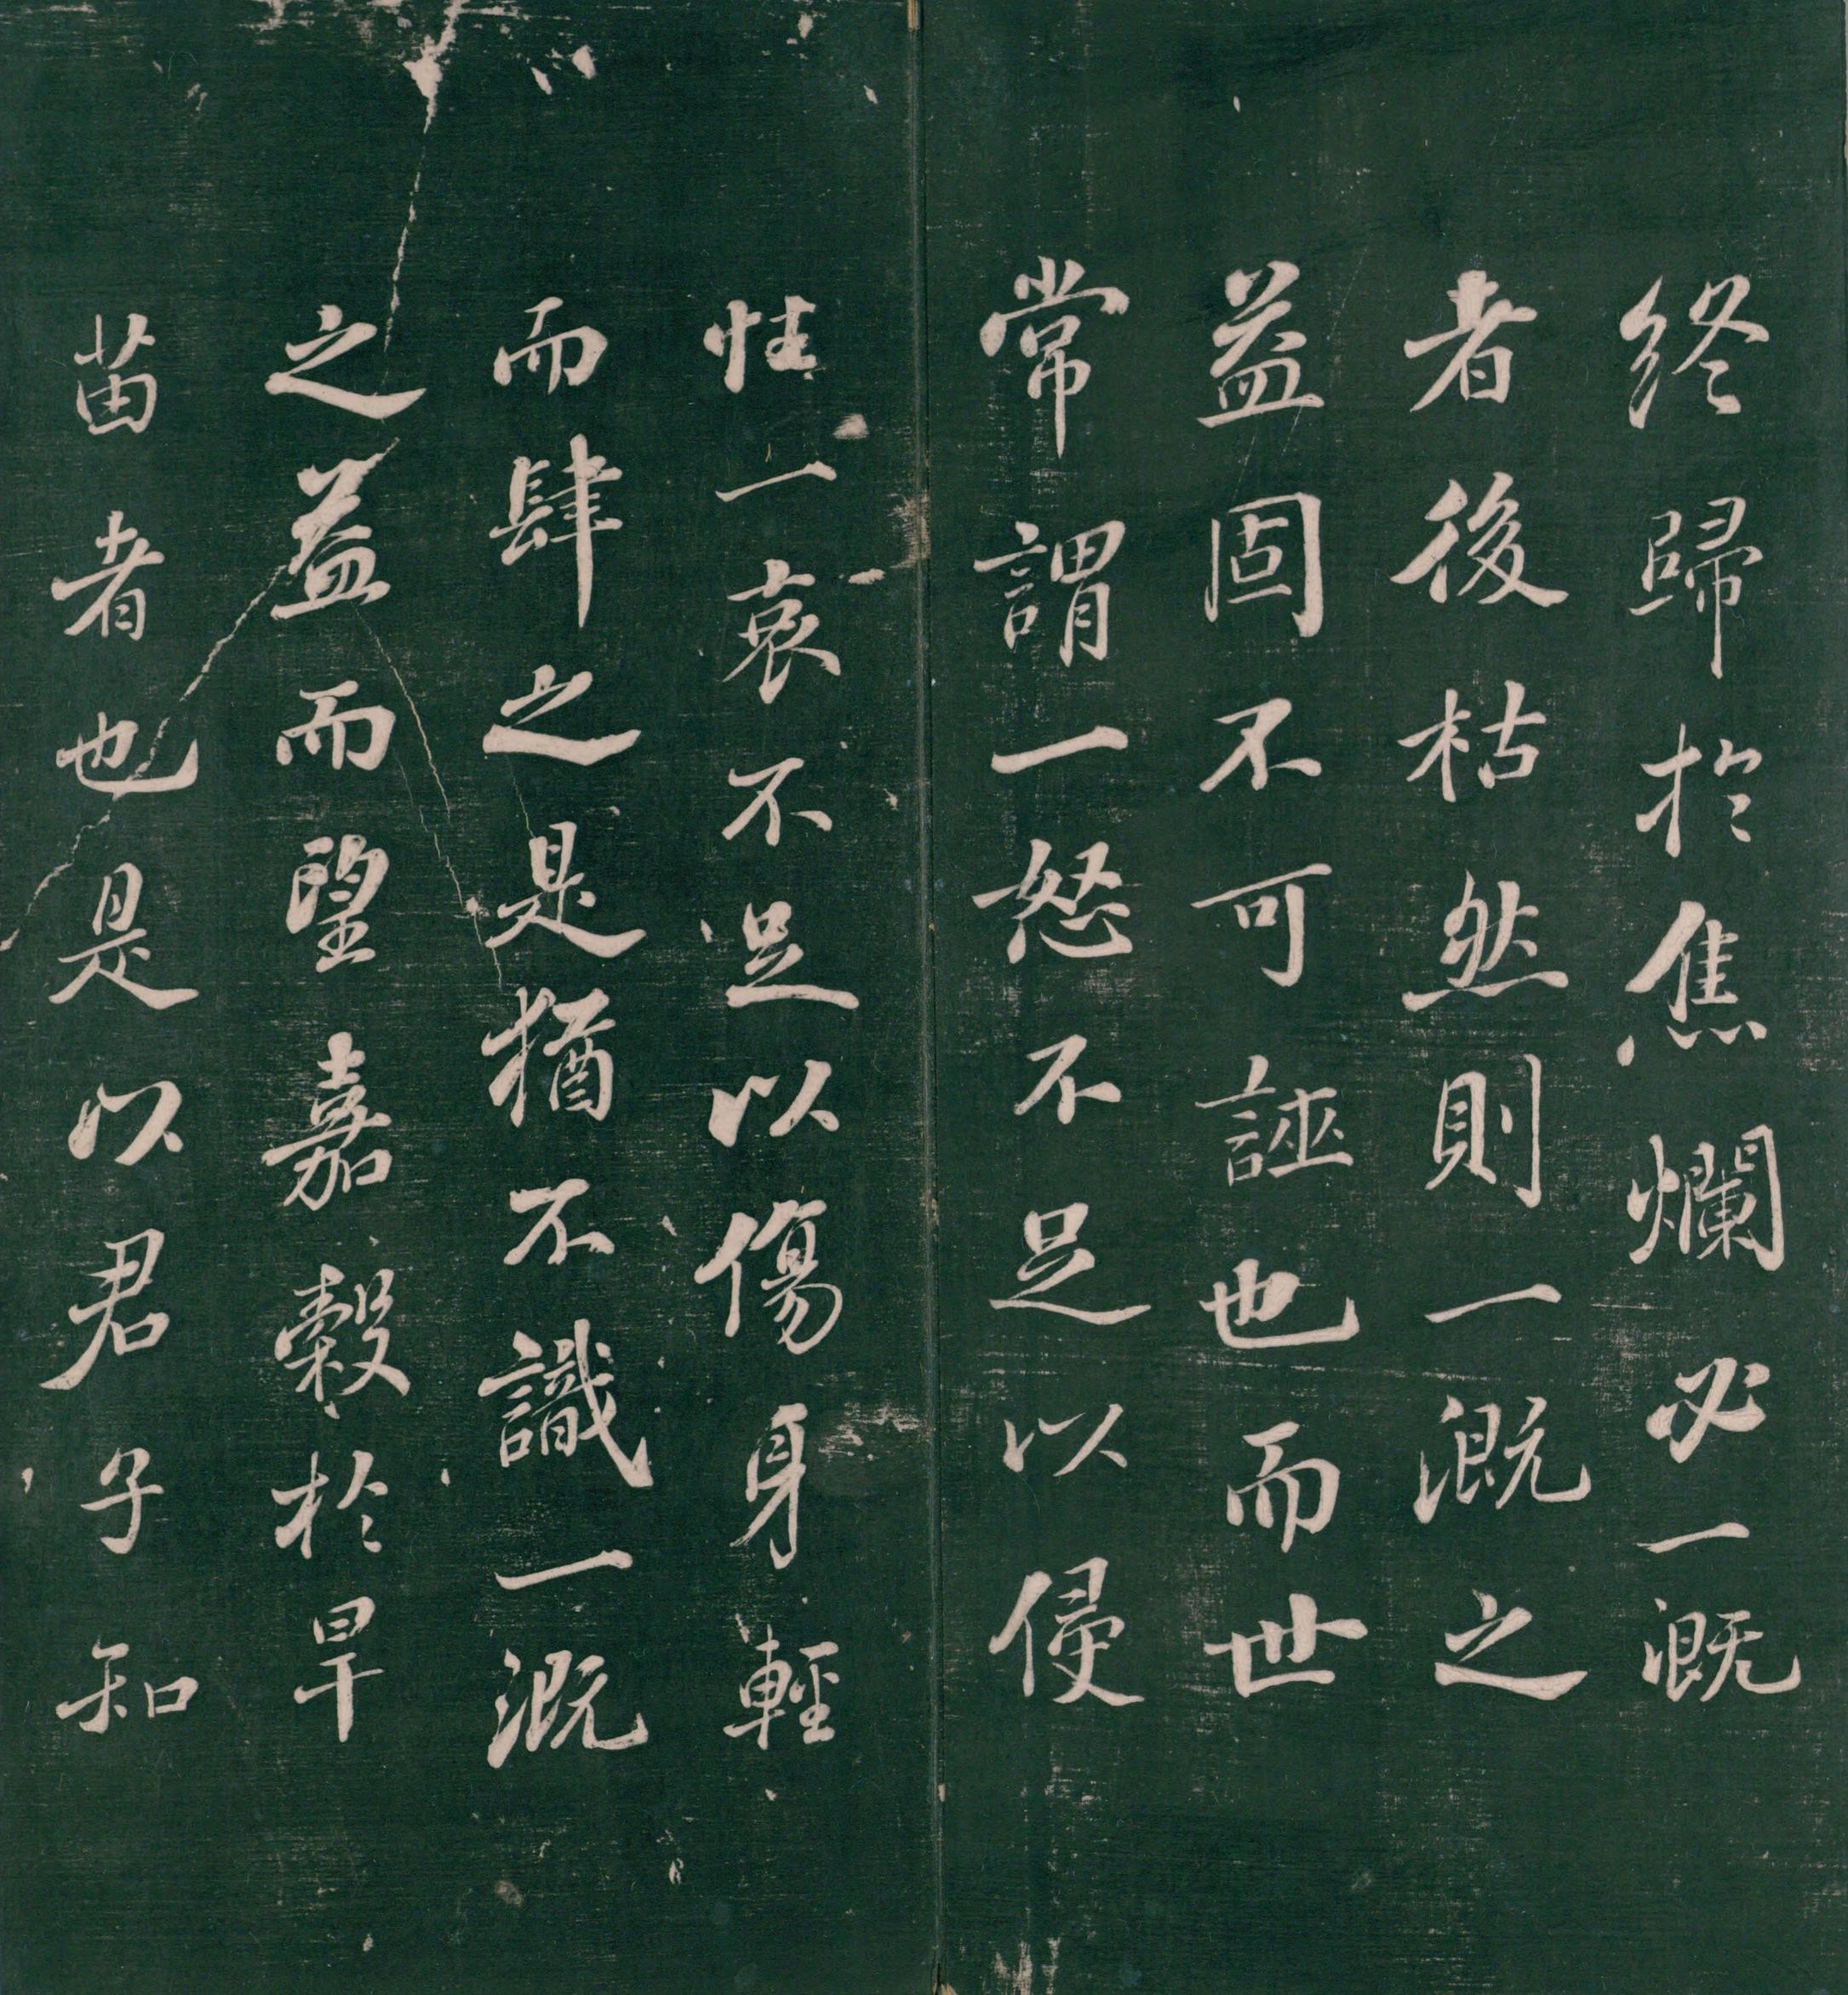 終歸於焦爛必一溉
者後枯然則一溉之
益固不可誣也而世
常謂一怒不足以侵
性一哀不足以傷身輕
而肆之是猶不識一溉
之益而望嘉穀於旱
苗者也是以君子知